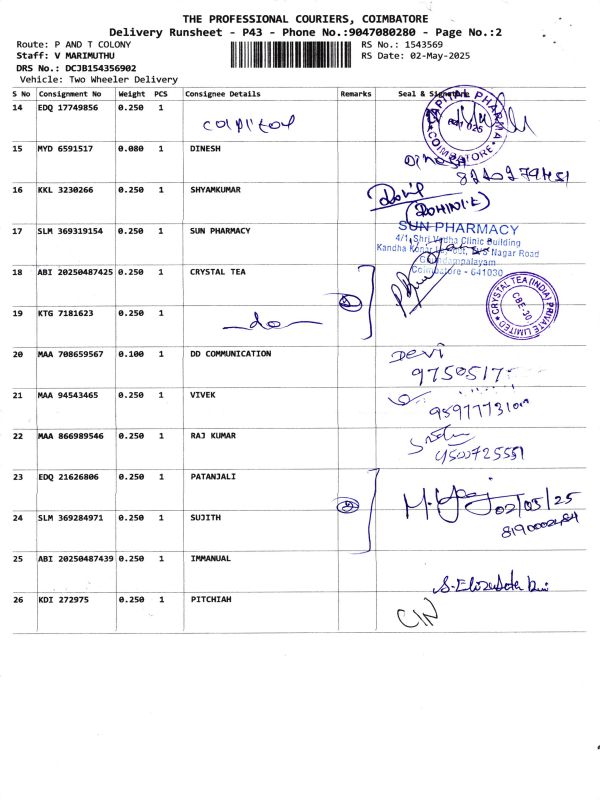 THE PROFESSIONAL COURIERS, COIMBATORE
Delivery Runsheet - P43 - Phone No.:9047080280 - Page No.:2
Route: P AND T COLONY
RS No.: 1543569
Staff: V MARIMUTHU
RS Date: 02-May-2025
DRS No.: DCJB154356902
Vehicle: Two Wheeler Delivery
S No Consignment No Weight PCS Consignee Details Remarks Seal & Signature
14 EDQ 17749856 0.250 1
capital
CAPITAL PHARMA
COIMBATORE
15 MYD 6591517 0.080 1 DINESH
Dinesh
16 KKL 3230266 0.250 1 SHYAMKUMAR
(ROHINI.E)
17 SLM 369319154 0.250 1 SUN PHARMACY
SUN PHARMACY
4/1, Shri Vedha Clinic Building
Nagar Road
Coimbatore - 641030
18 ABI 20250487425 0.250 1 CRYSTAL TEA
CRYSTAL TEA (INDIA) PRIVATE LIMITED
CBE-30
19 KTG 7181623 0.250 1
do
20 MAA 708659567 0.100 1 DD COMMUNICATION
Devi
9750517
21 MAA 94543465 0.250 1 VIVEK
22 MAA 866989546 0.250 1 RAJ KUMAR
23 EDQ 21626806 0.250 1 PATANJALI
02/05/25
24 SLM 369284971 0.250 1 SUJITH
25 ABI 20250487439 0.250 1 IMMANUAL
26 KDI 272975 0.250 1 PITCHIAH